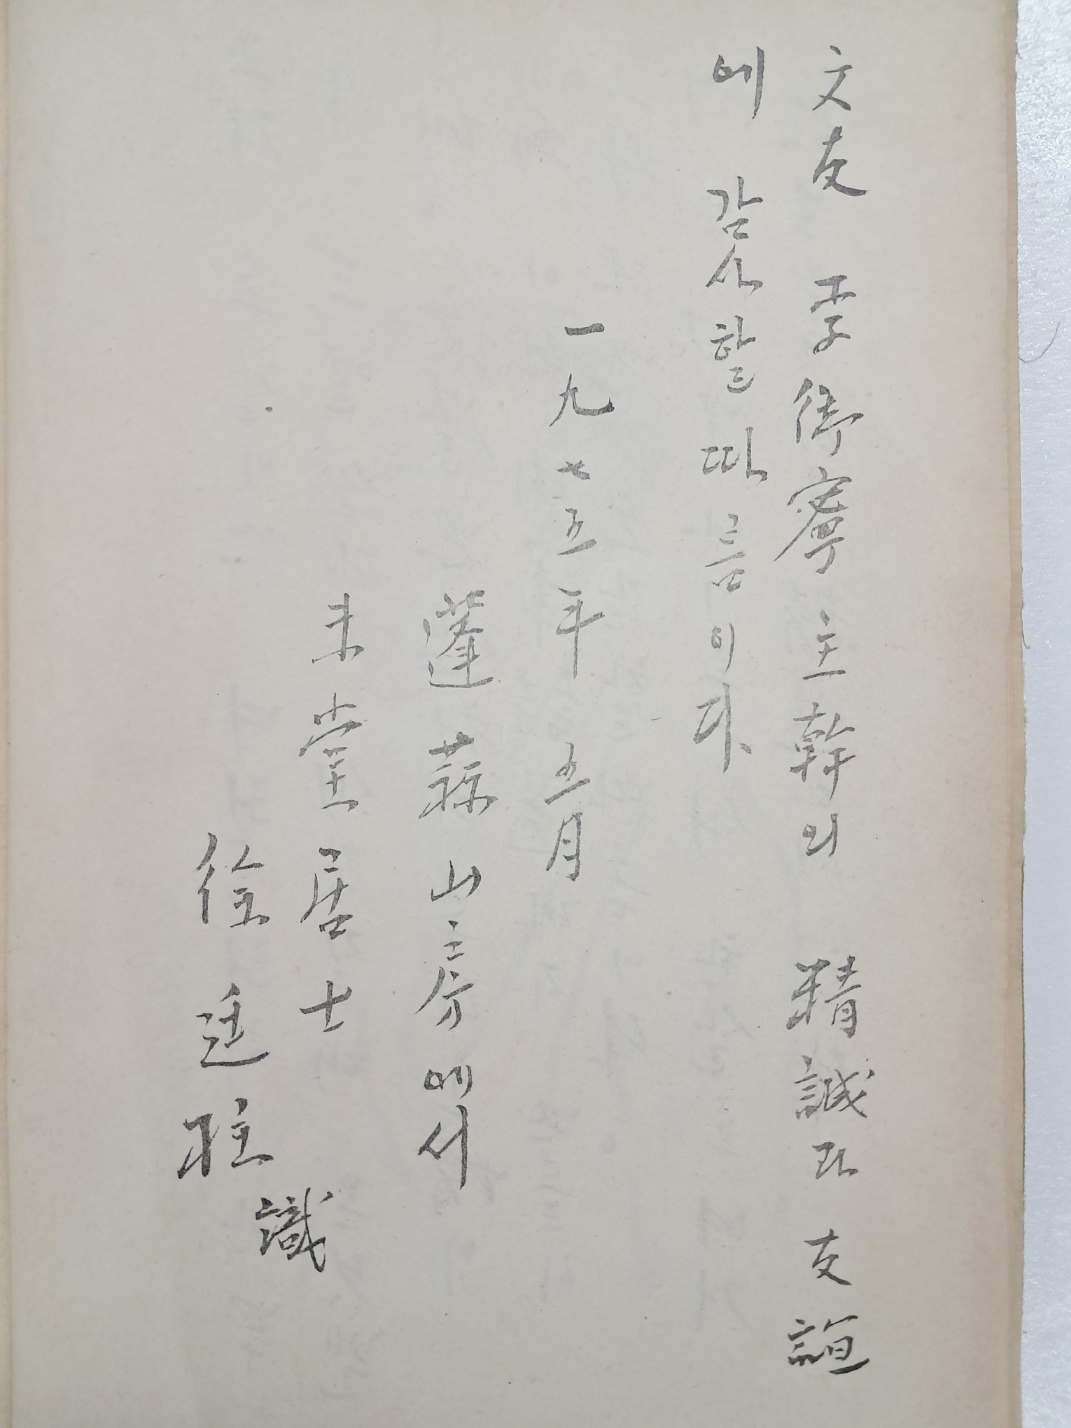 文友 李御寧 主幹의 精誠과 友誼
에 감사할 따름이다.
一九七五年 五月
蓬蒜山房에서
未堂居士
徐廷柱
識